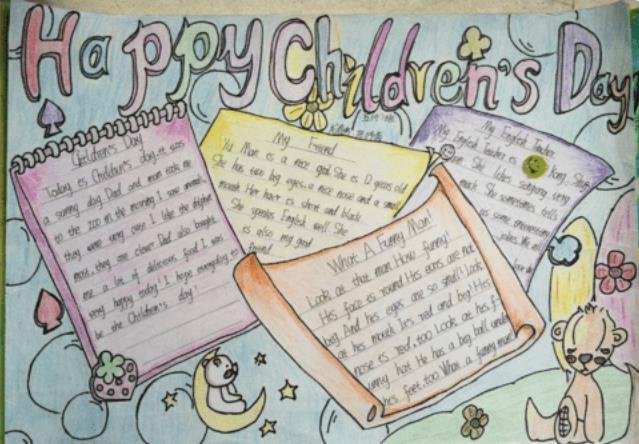 Happy Children's Day
Children's Day
Today is Children's day. it was
a sunny day. Dad and mom take me
to the zoo in the morning. I saw animals.
they were very cute. I like the
most. they are clever. Dad also bought
me a lot of delicious food. I was
very happy today! I hope everyday
be the Children's day!
My Friend
Yu Miao is a nice girl. She is 12 years old
She has two big eyes, a nice nose and a small
mouth. Her hair is short and black.
She speaks English well. She
is also my good
friend.
My English Teacher
My English Teacher is
She likes singing very
much. She sometimes tells
us some
What A Funny Man!
Look at that man. How funny!
His face is round. His ears are not
big. And his eyes are so small! Look
at his mouth. It's red and big! His
nose is red, too. Look at his
funny hat. He has a big ball under
his feet, too. What a funny man!